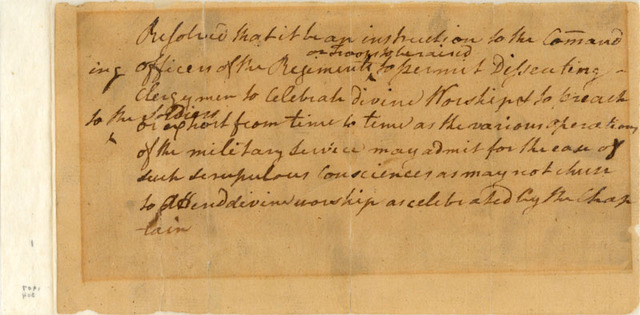 Resolved that it be an instruction to the Comand
ing officers of the Regiments or Troops to be raised to permit Dissenting
Clergymen to celebrate divine Worship & to preach
to the Soldiers or exhort from time to time as the various operations
of the military service may admit for the ease of
such scrupulous Consciences as may not chuse
to attend divine worship as celebrated by the Chap
-lain